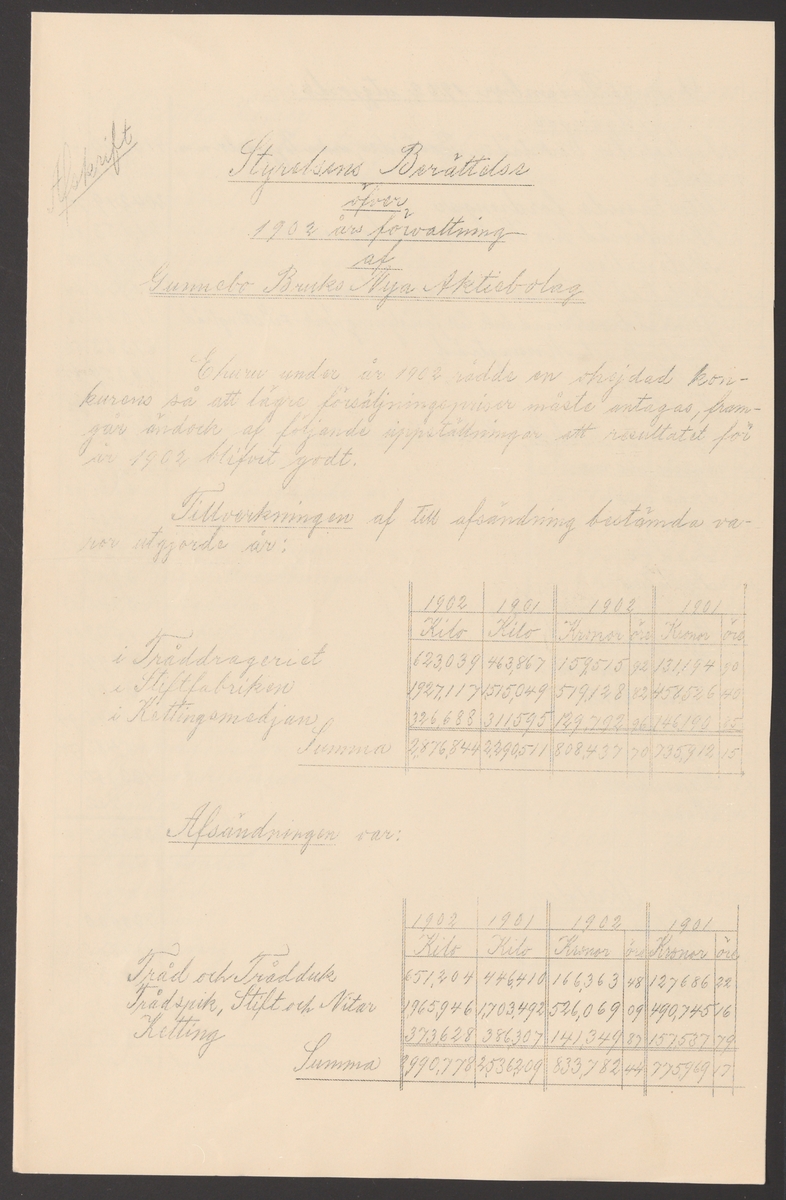 Afskrift
Styrelsens Berättelse
öfver
1902 års förvaltning
af
Gunnebo Bruks Nya Aktiebolag
Ehuru under år 1902 rådde en ohejdad kon-
kurens så att lägre försäljningspriser måste antagas, fram-
går ändock af följande uppställningar att resultatet för
år 1902 blifvit godt.
Tillverkningen af till afsändning bestämda va-
ror utgjorde år:
1902 1901 1902 1901
Kilo Kilo Kronor öre Kronor öre
i Tråddrageriet 623,039 463,867 159,515 92 131,194 90
i Stiftfabriken 1927,117 1,515,049 519,128 82 458,526 40
i Kettingsmedjan 326,688 311595 129,792 96 146190 85
Summa 2,876,844 2,290,511 808,437 70 735,912 15
Afsändningen var:
1902 1901 1902 1901
Kilo Kilo Kronor öre Kronor öre
Tråd och Trådduk 651,204 446,410 166,363 48 127686 22
Trådspik, Stift och Nitar 1965,946 1,703,492 526,069 09 490,745 16
Ketting 373,628 386,307 141,349 87 157537 79
Summa 2,990,778 2,536209 833,782 44 775,969 17